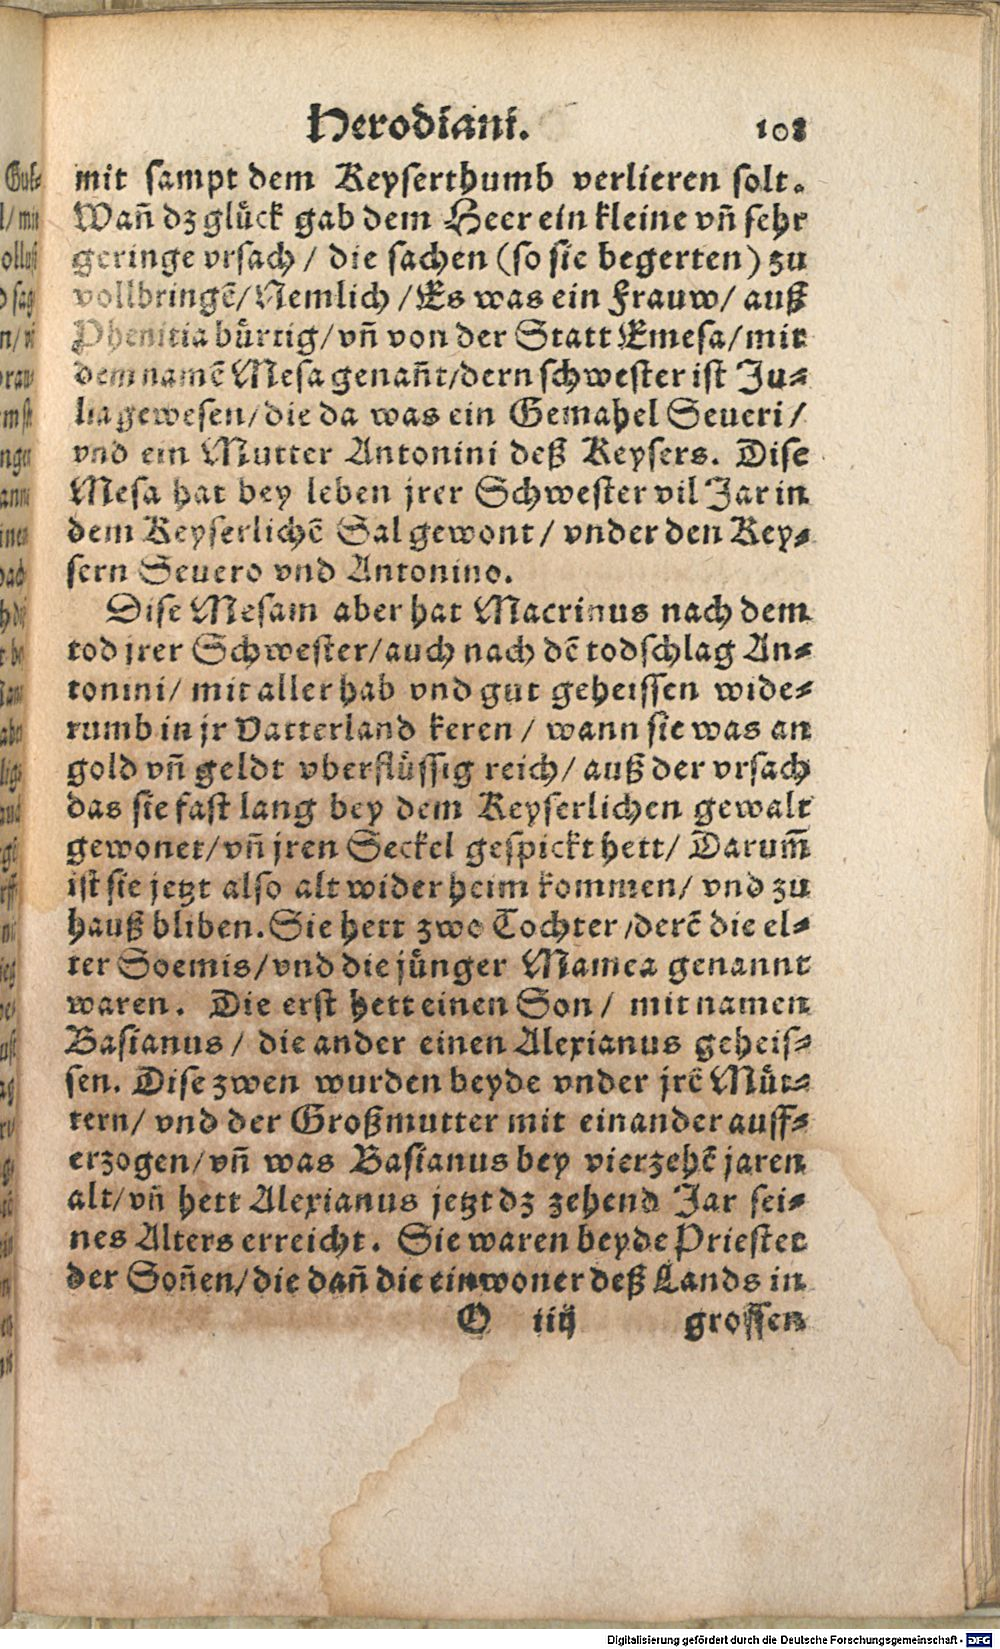 Herodiani. 108
mit sampt dem Keyserthumb verlieren solt.
Wañ dz glück gab dem Heer ein kleine vñ sehr
geringe vrsach / die sachen (so sie begerten) zu
vollbringẽ / Nemlich / Es was ein Frauw / auß
Phenitia bürtig / vñ von der Statt Emesa / mit
dem namẽ Mesa genañt / dern schwester ist Ju⸗
lia gewesen / die da was ein Gemahel Seueri /
vnd ein Mutter Antonini deß Keysers. Dise
Mesa hat bey leben jrer Schwester vil Jar in
dem Keyserlichẽ Sal gewont / vnder den Key⸗
sern Seuero vnd Antonino.
Dise Mesam aber hat Macrinus nach dem
tod jrer Schwester / auch nach dẽ todschlag An⸗
tonini / mit aller hab vnd gut geheissen wide⸗
rumb in jr Vatterland keren / wann sie was an
gold vñ geldt vberflüssig reich / auß der vrsach
das sie fast lang bey dem Keyserlichen gewalt
gewonet / vñ jren Seckel gespickt hett / Darum̃
ist sie jetzt also alt wider heim kommen / vnd zu
hauß bliben. Sie hett zwo Tochter / derẽ die el⸗
ter Soemis / vnd die jünger Mamea genannt
waren. Die erst hett einen Son / mit namen
Basianus / die ander einen Alexianus geheis⸗
sen. Dise zwen wurden beyde vnder jrẽ Müt⸗
tern / vnd der Großmutter mit einander auff⸗
erzogen / vñ was Basianus bey vierzehẽ jaren
alt / vñ hett Alexianus jetzt dz zehend Jar sei⸗
nes Alters erreicht. Sie waren beyde Priester
der Soñen / die dañ die einwoner deß Lands in
O iiij grossen
Digitalisierung gefördert durch die Deutsche Forschungsgemeinschaft - DFG